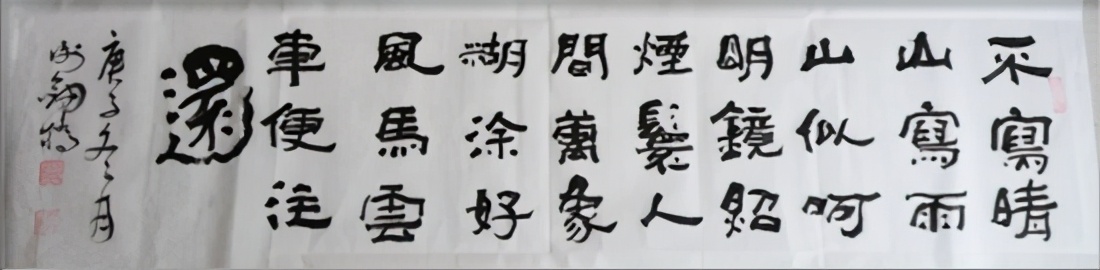 不寫晴
山寫雨
山似呵
明鏡照
煙鬟人
間萬象
糊涂好
風馬雲
車便往
還
庚子冬月